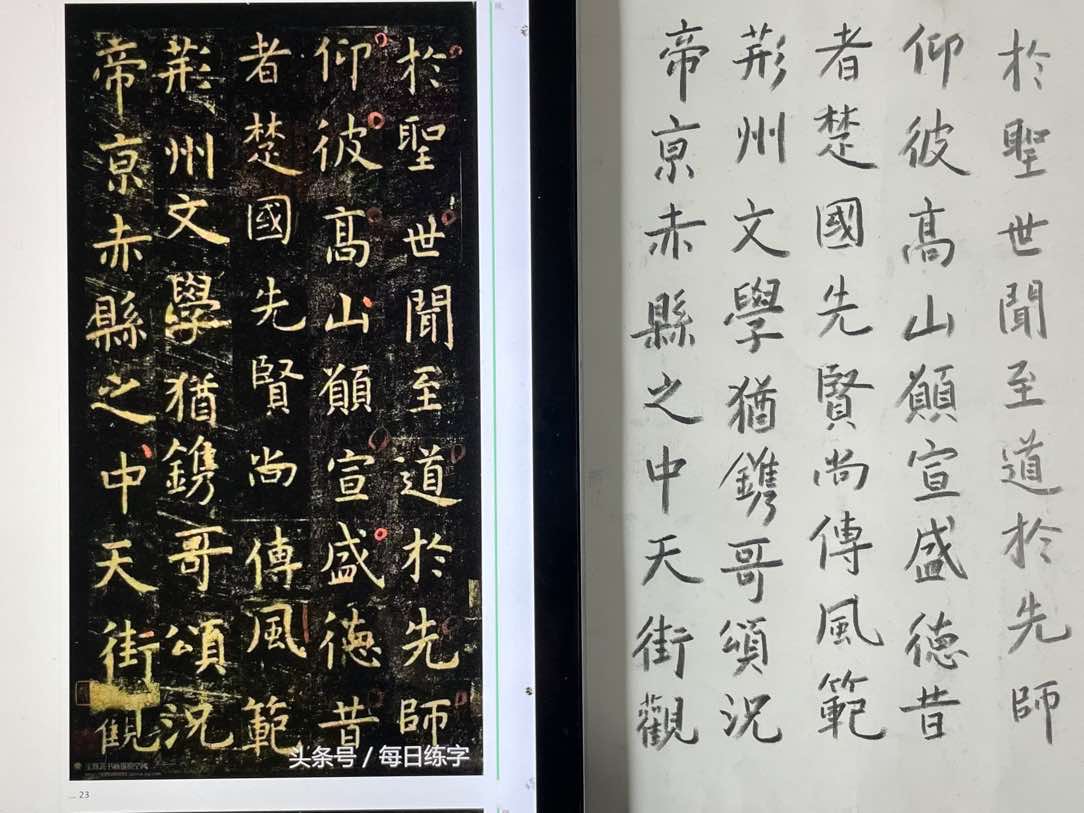 於聖世聞至道於先師
仰彼高山願宣盛德昔
者楚國先賢尚傳風範
荊州文學猶鐫哥頌況
帝京赤縣之中天街觀
头条号 / 每日练字
23
於聖世聞至道於先師
仰彼高山願宣盛德昔
者楚國先賢尚傳風範
荊州文學猶鐫哥頌況
帝京赤縣之中天街觀